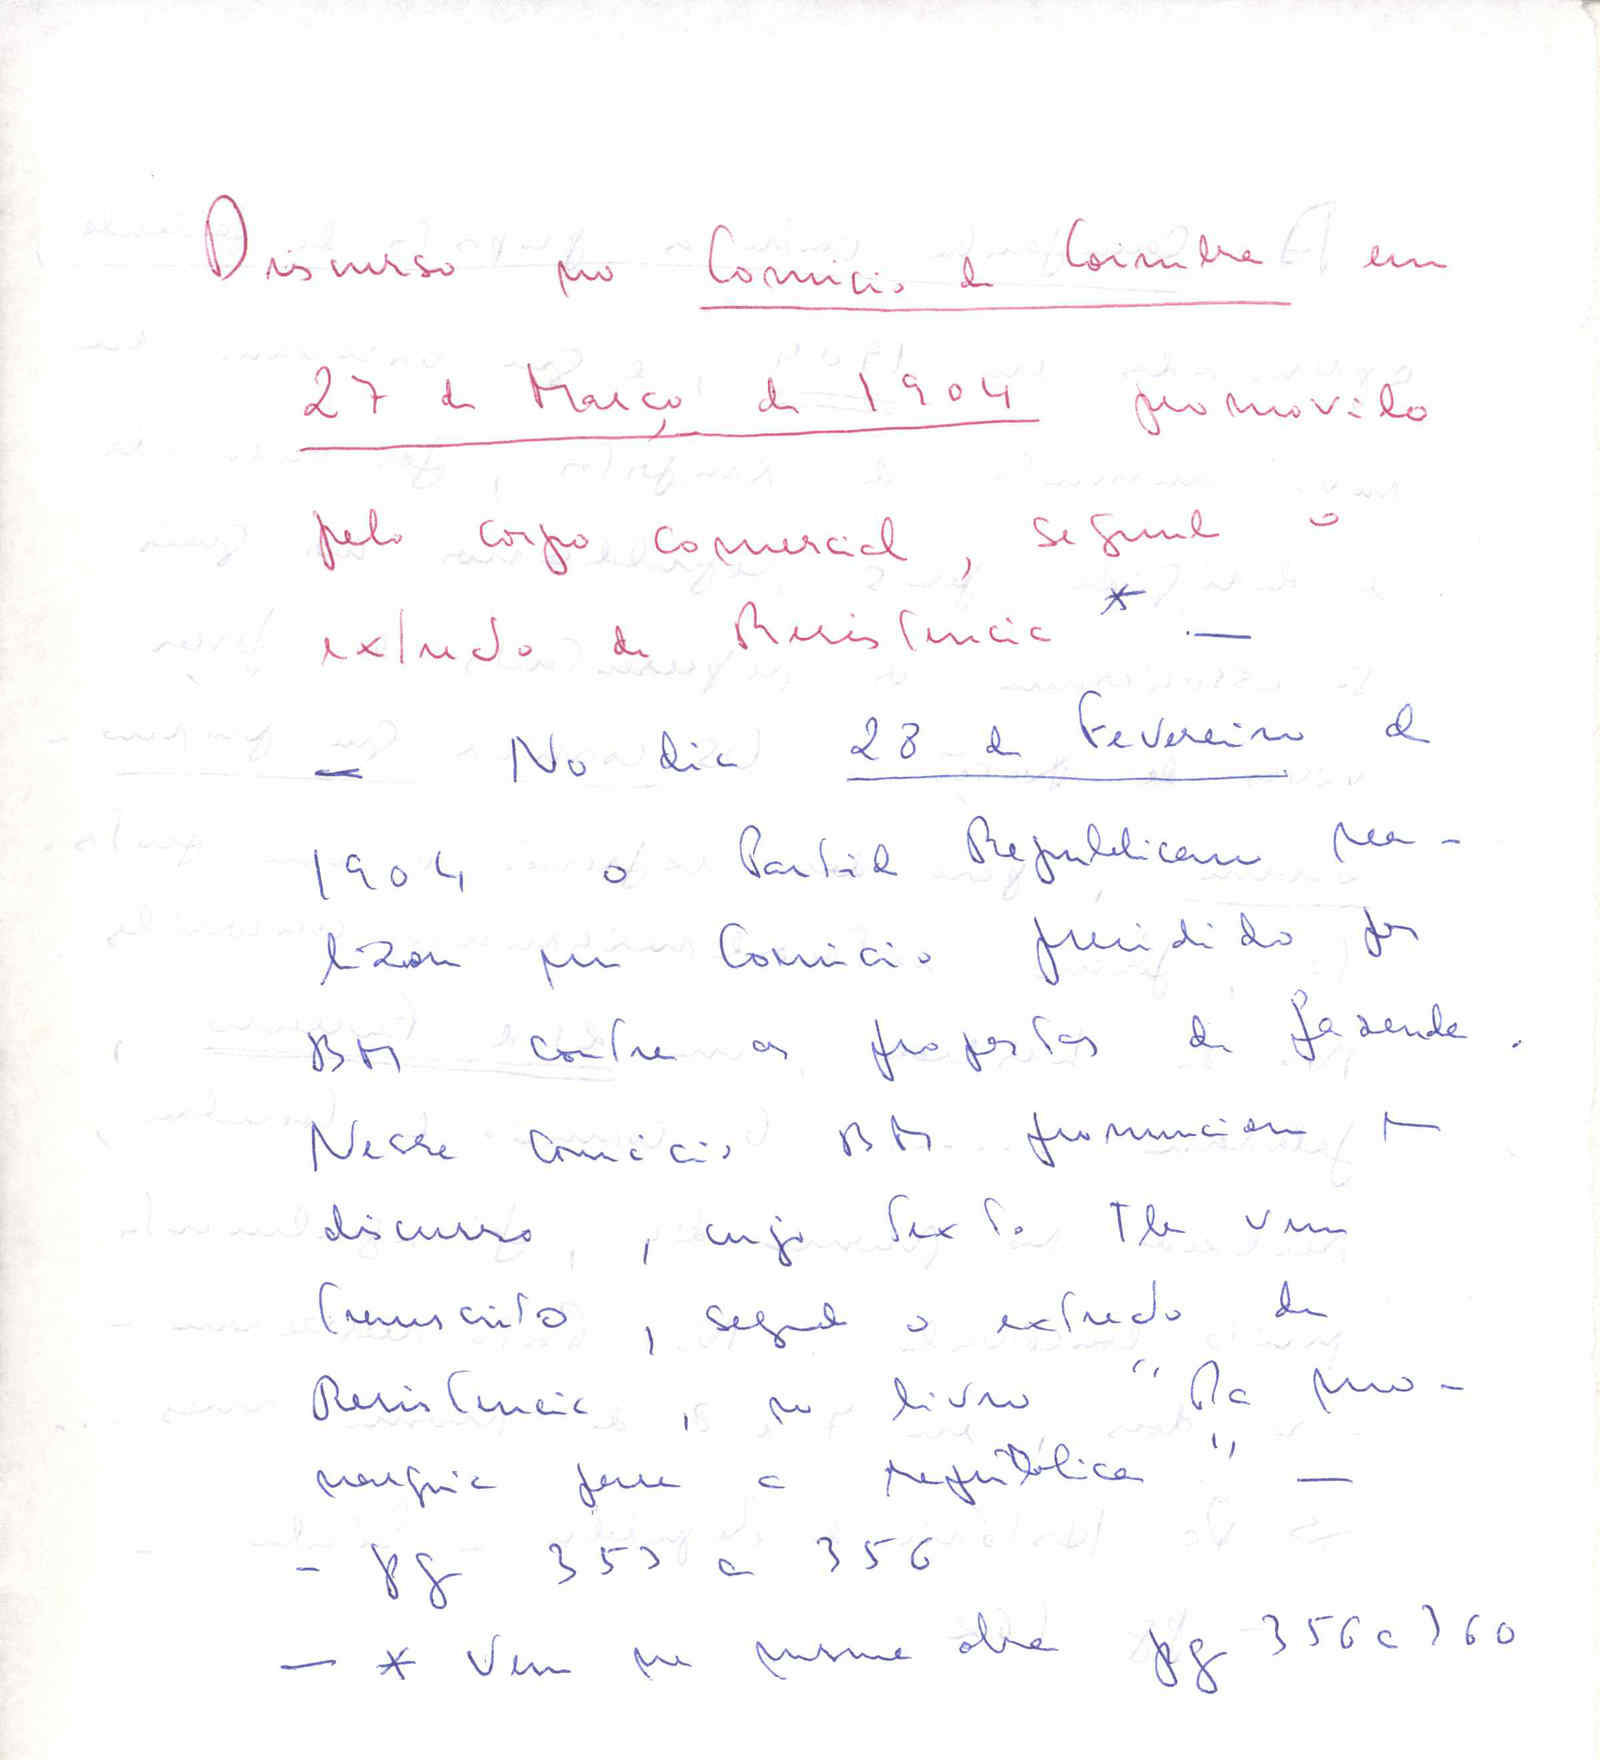 Discurso no Comicio de Coimbra em
27 de Março de 1904 promovido
pelo corpo comercial, segundo o
extracto da Resistencia * . —
— No dia 28 de Fevereiro de
1904 o Partido Republicano rea-
lizou um Comicio presidido por
BM contra as propostas de fazenda.
Nesse comicio BM pronunciou
discurso, cujo texto vem
transcrito, segundo o extracto da
Resistencia, no livro "Da mo-
narquia para a republica" —
- pg 353 a 356
— * Vem na mesma obra pg 356 a 360